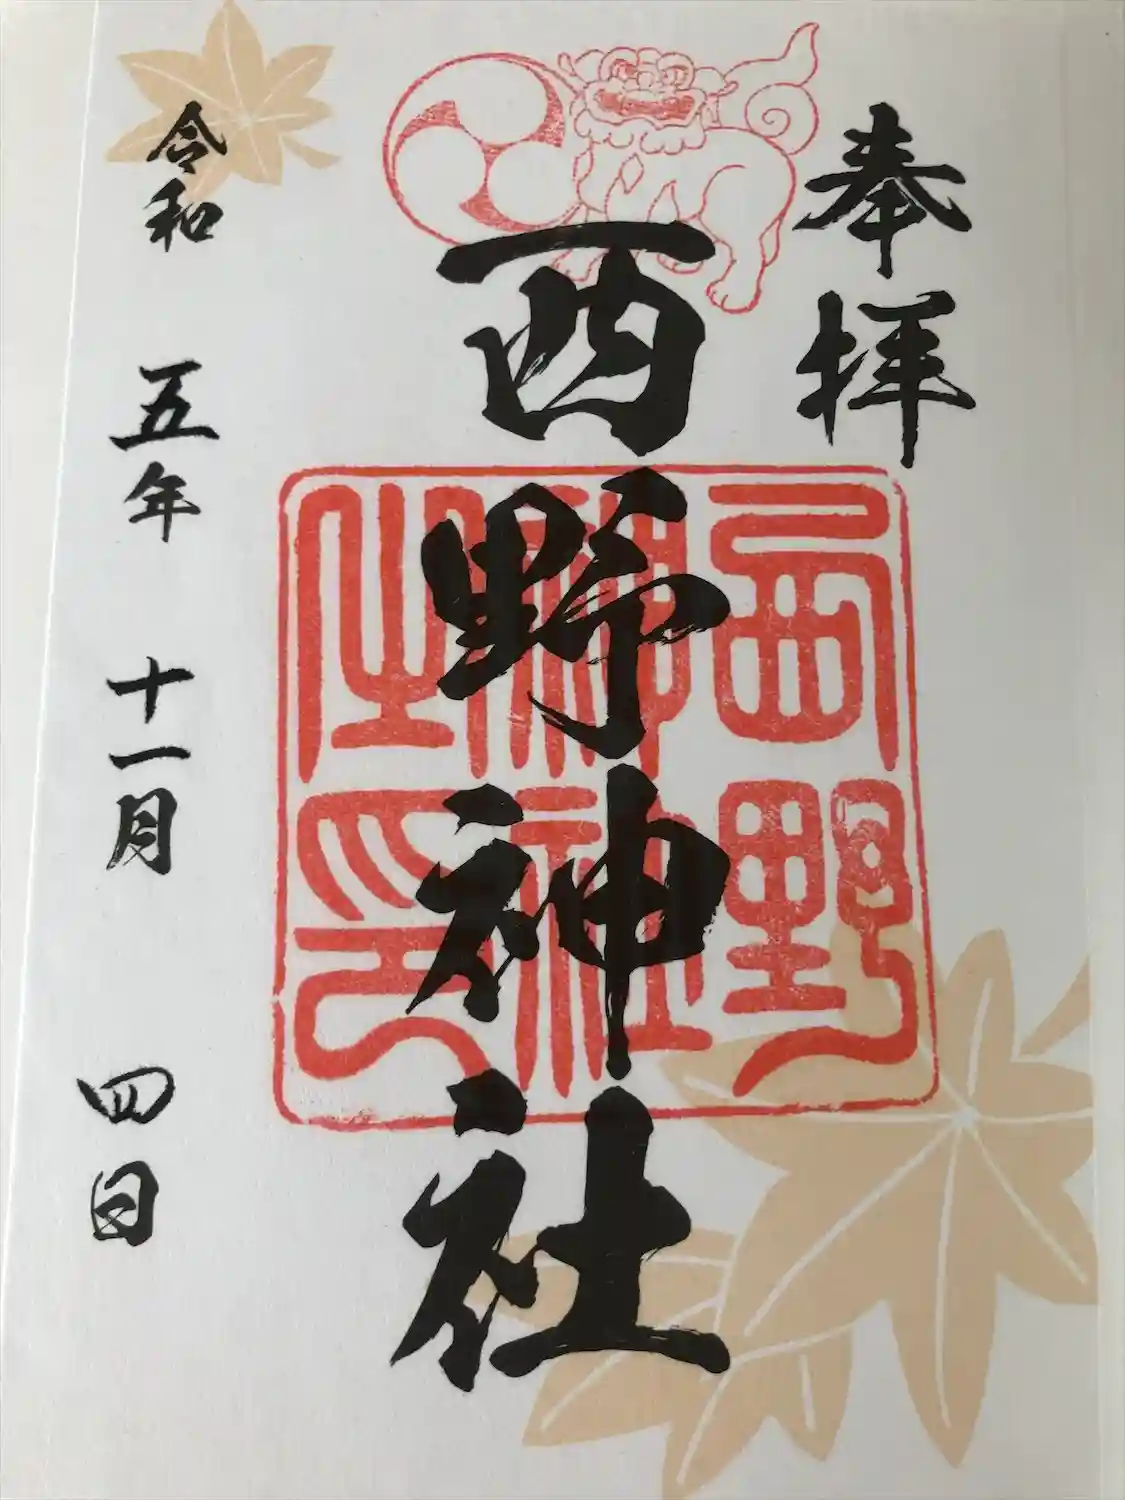 奉拝
西野神社
西野神社之印
令和 五年 十一月 四日